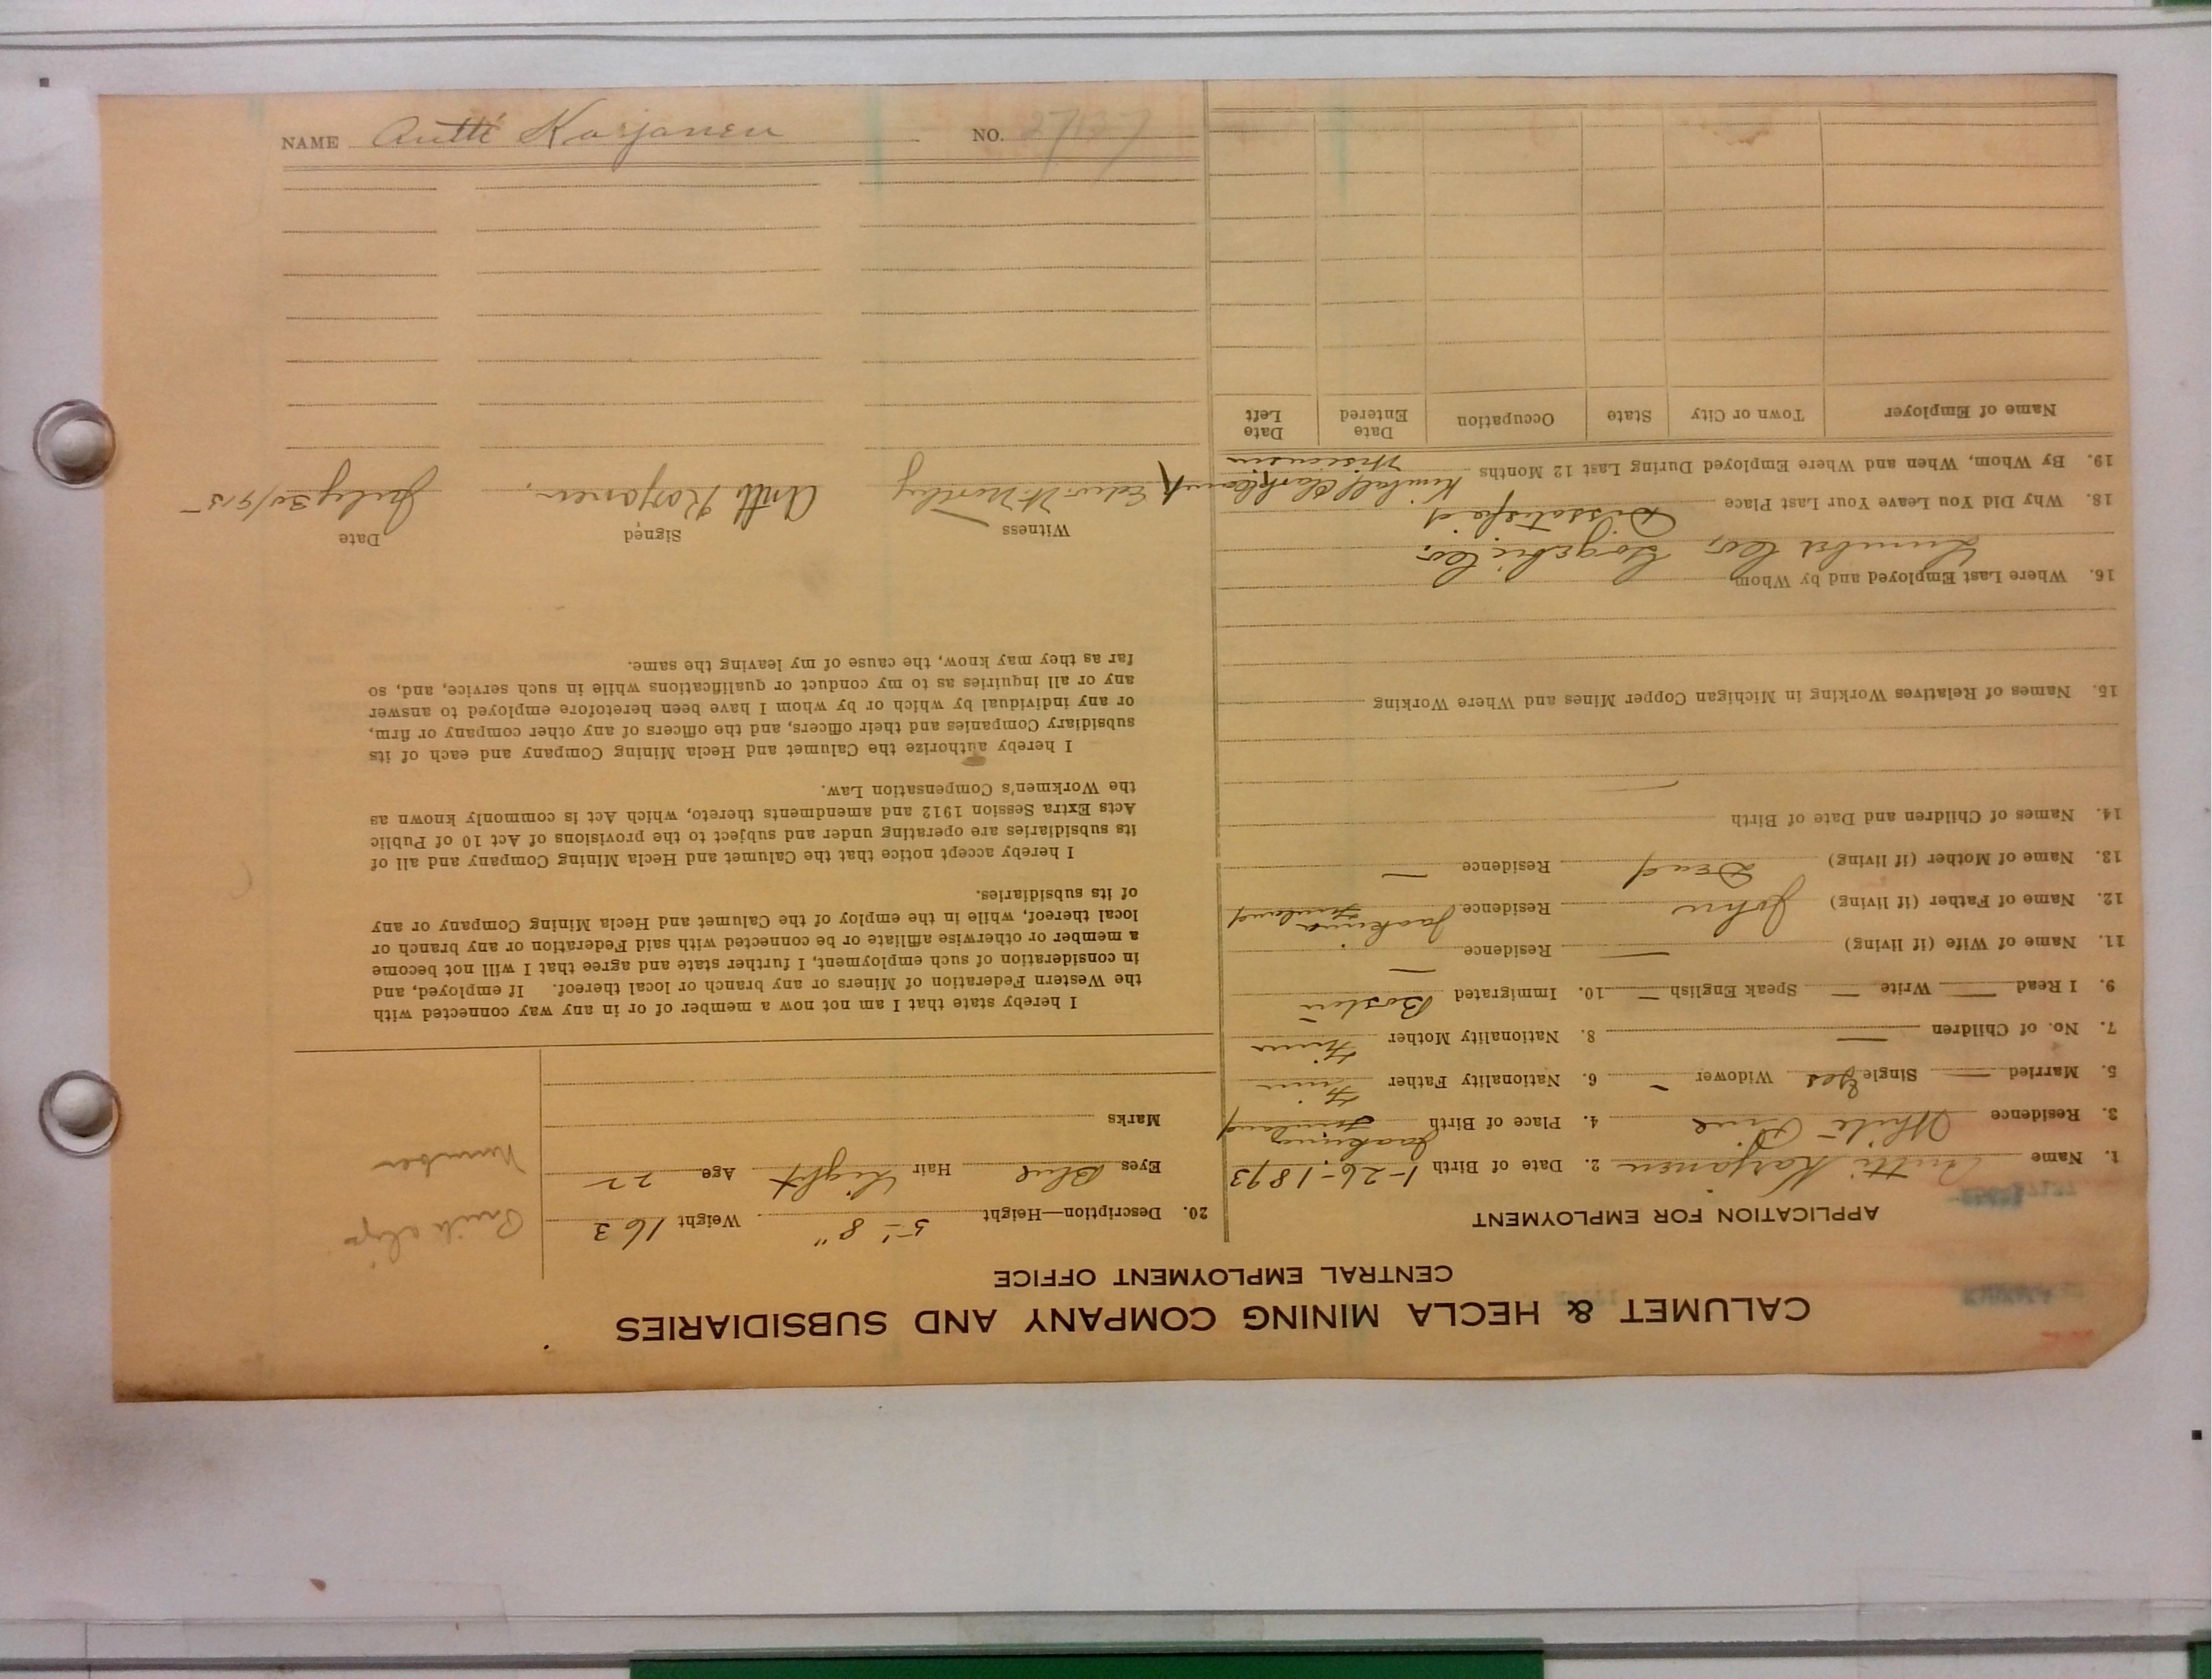 CALUMET & HECLA MINING COMPANY AND SUBSIDIARIES
CENTRAL EMPLOYMENT OFFICE
APPLICATION FOR EMPLOYMENT
1. Name Antti Karjanen 2. Date of Birth 1-26-1893
3. Residence White Pine 4. Place of Birth Jaakima Finland
5. Married — Single Yes Widower — 6. Nationality Father Finn
7. No. of Children — 8. Nationality Mother Finn
9. I Read — Write — Speak English — 10. Immigrated Boston
11. Name of Wife (if living) — Residence —
12. Name of Father (if living) John Residence Jaakima Finland
13. Name of Mother (if living) Dead Residence —
14. Names of Children and Date of Birth —
15. Names of Relatives Working in Michigan Copper Mines and Where Working
16. Where Last Employed and by Whom
Lumber Co, Gogebic Co.
18. Why Did You Leave Your Last Place Dissatisfied
19. By Whom, When and Where Employed During Last 12 Months Kimball Clark Wisconsin
Name of Employer Town or City State Occupation Date Entered Date Left
20. Description—Height 5-'8" Weight 163
Eyes Blue Hair Light Age 22
Marks
Number
I hereby state that I am not now a member of or in any way connected with
the Western Federation of Miners or any branch or local thereof. If employed, and
in consideration of such employment, I further state and agree that I will not become
a member or otherwise affiliate or be connected with said Federation or any branch or
local thereof, while in the employ of the Calumet and Hecla Mining Company or any
of its subsidiaries.
I hereby accept notice that the Calumet and Hecla Mining Company and all of
its subsidiaries are operating under and subject to the provisions of Act 10 of Public
Acts Extra Session 1912 and amendments thereto, which Act is commonly known as
the Workmen's Compensation Law.
I hereby authorize the Calumet and Hecla Mining Company and each of its
subsidiary Companies and their officers, and the officers of any other company or firm,
or any individual by which or by whom I have been heretofore employed to answer
any or all inquiries as to my conduct or qualifications while in such service, and, so
far as they may know, the cause of my leaving the same.
Witness Signed Date
Edw. W. Antti Karjanen, July 30/915
NAME Antti Karjanen NO. 27137